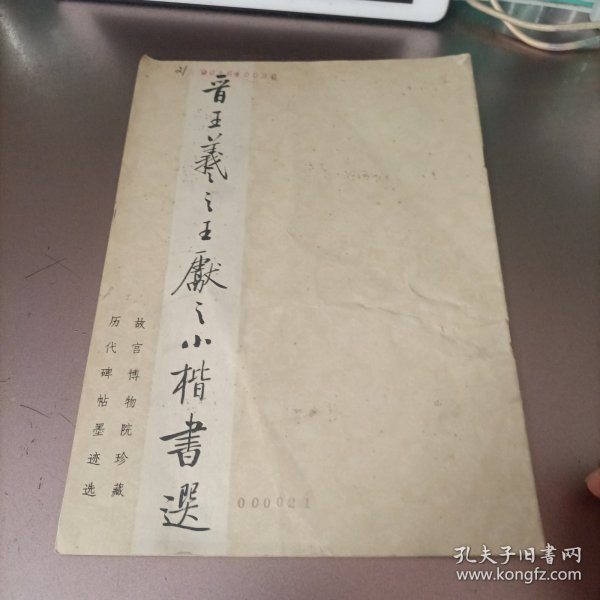 21
晋王羲之王獻之小楷書選
故宫博物院珍藏
历代碑帖墨迹选
000021
孔夫子旧书网
www.kongfz.com